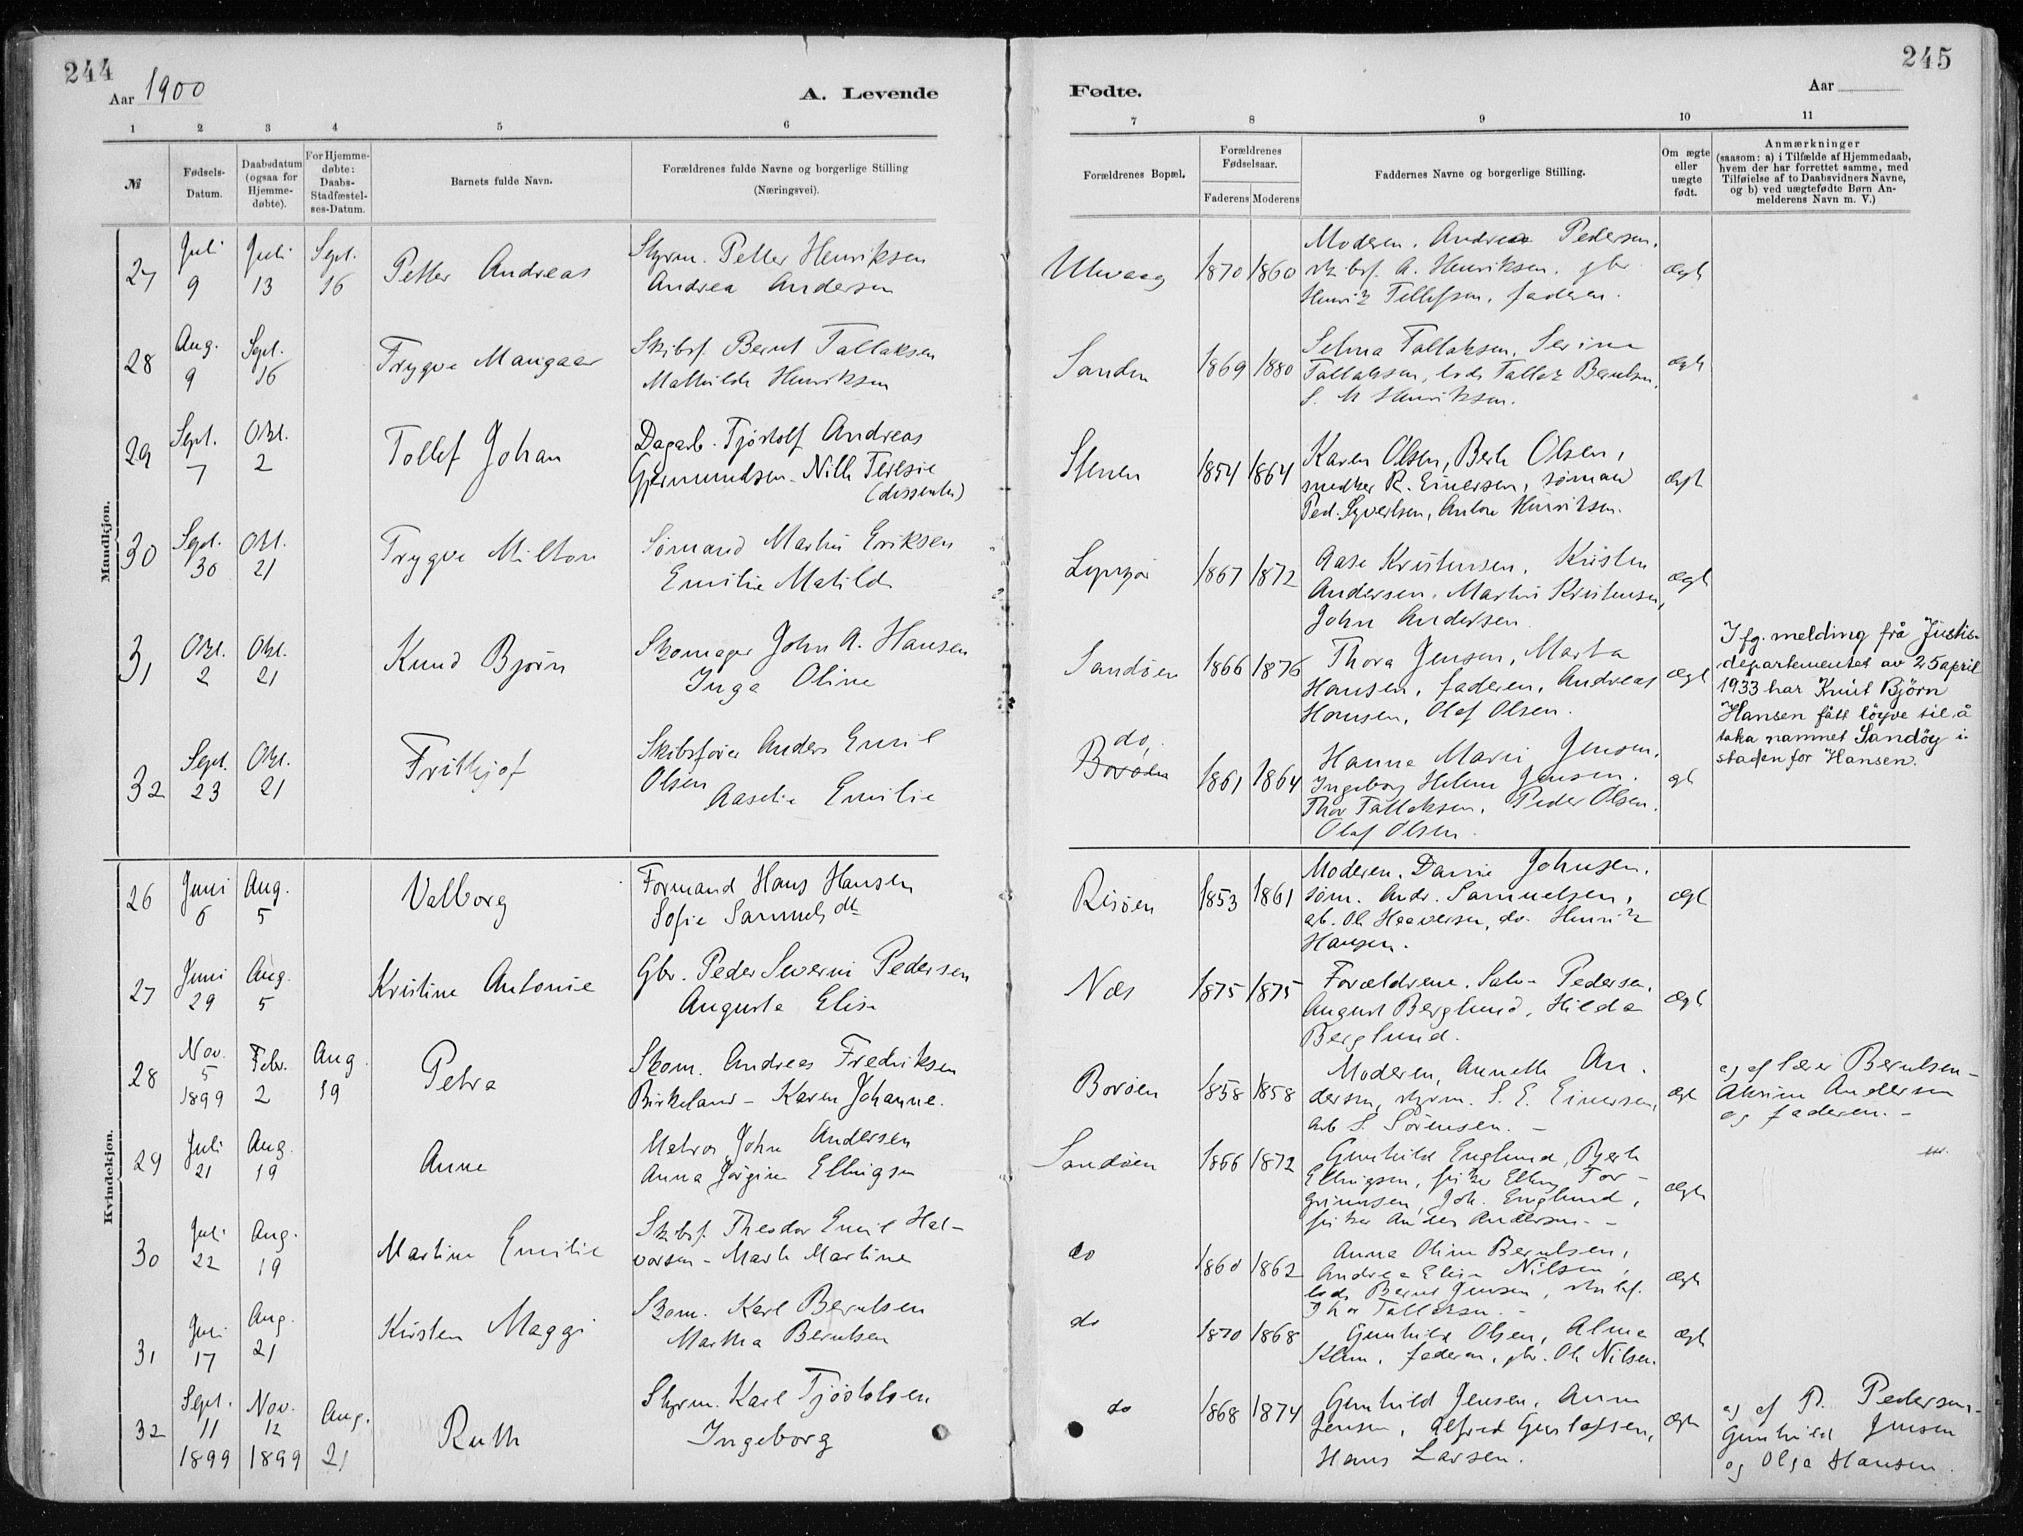 244
Aar 1900
A. Levende
1 2 3 4 5 6
№
Fødsels-Datum.
Daabsdatum (ogsaa for Hjemme-døbte).
For Hjemme-døbte: Daabs-Stadfæstel-ses-Datum.
Barnets fulde Navn.
Forældrenes fulde Navne og borgerlige Stilling
(Næringsvei).
Mandkjøn.
27 Juli 9 Juli 13 Sept. 16 Petter Andreas
Styrm. Petter Henriksen
Andrea Andersen
28 Aug. 9 Sept. 16 Trygve Mangaar
Skibsf. Bernt Tallaksen
Mathilde Henriksen
29 Sept. 7 Okt. 2 Tollef Johan
Dagarb. Tjøstolf Andreas
Gjermundsen - Nille Teresie
(dissenter)
30 Sept. 30 Okt. 21 Trygve Milton
Sømand Martin Eriksen
Emilie Matilde
31 Okt. 2 Okt. 21 Knud Bjørn
Skomager John A. Hansen
Inga Oline
32 Sept. 23 Okt. 21 Frithjof
Skibsfører Anders Emil
Olsen
Aaselie Emilie
Kvindekjøn.
26 Juni 6 Aug. 5 Valborg
Formand Hans Hansen
Sofie Samuelsdt
27 Juni 29 Aug. 5 Kristine Antonie
Gbr. Peder Severin Pedersen
Augusta Elise
28 Nov. 5 1899 Febr. 2 Aug. 19 Petra
Skom. Andreas Fredriksen
Birkeland - Karen Johanne.
29 Juli 21 Aug. 19 Anne
Matros John Andersen
Anna Jørgine Ellingsen
30 Juli 22 Aug. 19 Martine Emilie
Skibsf. Theodor Emil Hal-
vorsen - Marte Martine
31 Juli 17 Aug. 21 Kirsten Maggi
Skom. Karl Berntsen
Martha Berntsen
32 Sept. 11 1899 Nov. 12 1899 Aug. 21 Ruth
Styrm. Karl Tjøstolsen
Ingeborg
245
Fødte.
Aar
7 8 9 10 11
Forældrenes Bopæl.
Forældrenes Fødselsaar.
Faderens Moderens
Faddernes Navne og borgerlige Stilling.
Om ægte eller uægte født.
Anmærkninger
(saasom: a) i Tilfælde af Hjemmedaab,
hvem der har forrettet samme, med
Tilføielse af to Daabsvidners Navne,
og b) ved uægtefødte Børn An-
melderens Navn m. V.)
Ulevaag 1870 1860
Moderen. Andrea Pedersen.
skibsf. A. Henriksen. gbr
Henrik Tellefsen, faderen.
ægte
Sanden 1869 1880
Selma Tallaksen, Serine
Tallaksen, lods Tallak Berntsen,
S. M Henriksen.
ægte
Stenen 1854 1864
Karen Olsen, Berte Olsen,
snedker R. Einersen, sømand
Ped. Syvertsen, Anton Henriksen.
ægte
Lyngør 1867 1872
Aase Kristensen, Kristen
Andersen. Martin Kristensen,
John Andersen
ægte
Sandøen 1866 1876
Thora Jensen, Marta
Hansen, faderen, Andreas
Hansen, Olaf Olsen.
ægte
I fg. melding frå Justis-
departementet av 25 april
1933 har Knut Björn
Hansen fått löyve til å
taka namnet Sandöy i
staden for Hansen.
do,
Borøen 1861 1864
Hanna Marie Jensen.
Ingeborg Helene Jensen.
Thor Tallaksen, Peder Olsen.
Olaf Olsen.
gt
Risøen 1853 1861
Moderen. Johnsen.
søm. Andr. Samuelsen,
arb. Ol. Haaversen, do. Henrik
Hansen.
ægt
Næs 1875 1875
Forældrene. Salv. Pedersen,
August Berglund, Hilda
Berglund.
ægt
Borøen 1858 1858
Moderen, Annette An-
dersen, styrm. S. E. Einersen,
arb S. Sørensen. -
ægt
og af lærer Berntsen -
Andersen
og faderen. -
Sandøen 1866 1872
Gunhild Englund, Berte
Ellingsen, fisker Elling Tor-
grimsen, Joh. Englund,
fisker Anders Andersen. -
ægte
do 1860 1862
Anna Oline Berntsen,
Andrea Elise Nilsen,
lods Bernt Jensen, skibsf.
Thor Tallaksen. -
ægte
do 1870 1868
Gunhild Olsen, Alma
Klem, faderen, gbr. Ole Nilsen.
ægt
do 1868 1874
Gunhild Jensen, Anna
Jensen, Alfred Gustafsen,
Hans Larsen.
ægte
og af P. Pedersen -
Gunhild Jensen
og Olga Hansen.